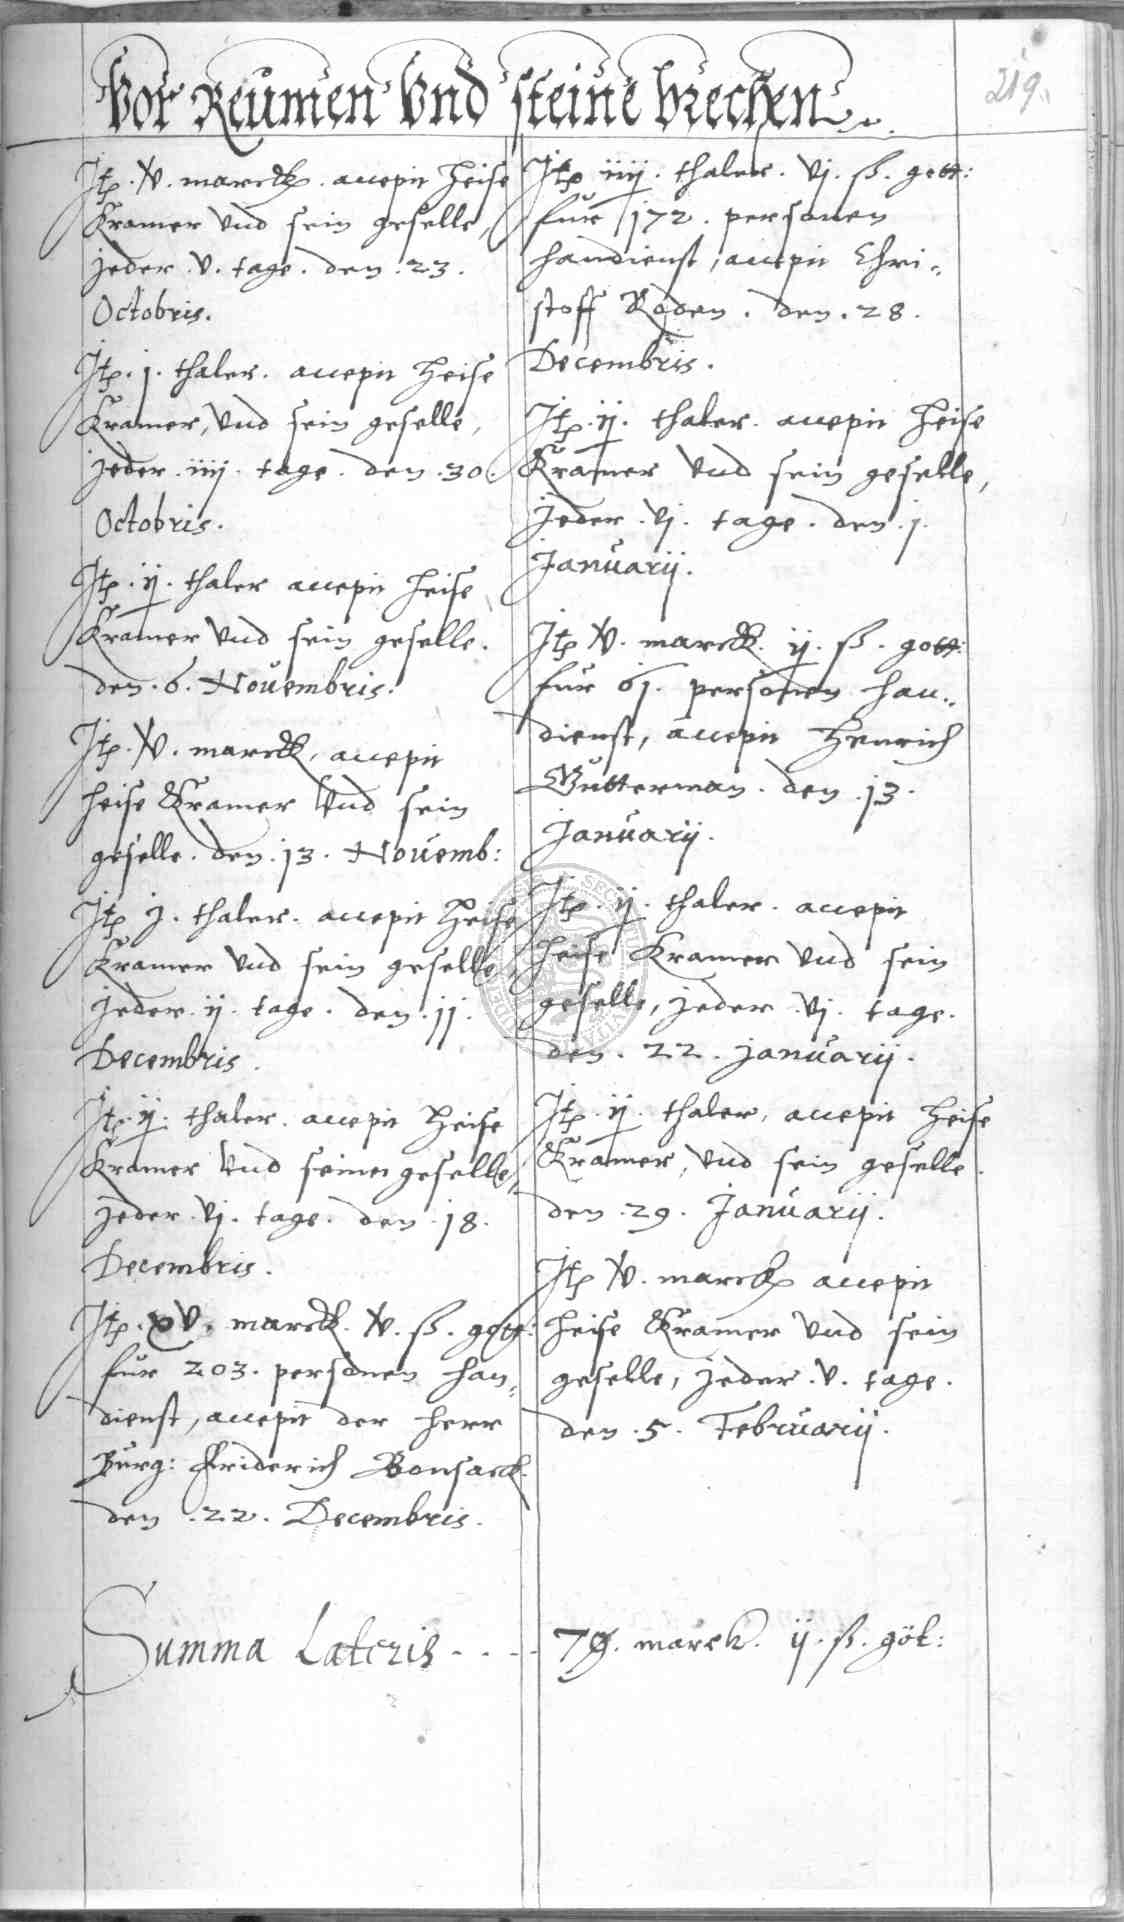 Vor Reumen Vnd steine brechen
219.
Itē .v. marck. accepit Heise
Kramer vnd sein geselle,
jeder .v. tage. den .23.
Octobris.
Itē .j. thaler. accepit Heise
Kramer, vnd sein geselle,
jeder .iiij. tage. den .30.
Octobris.
Itē .ij. thaler accepit Heise
Kramer vnd sein geselle.
den .6. Nouembris.
Itē .v. marck, accepit
Heise Kramer vnd sein
geselle. den .13. Nouemb:
Itē j. thaler. accepit Heise
Kramer vnd sein geselle,
jeder .ij. tage. den .11.
Decembris.
Itē .ij. thaler. accepit Heise
Kramer vnd seiner geselle,
jeder .vj. tage. den .18.
Decembris.
Itē .xv. marck. v. ß. gott:
fur 203. personen han-
dienst, accepit der herr
Burg: Friderich Bonsack.
den .22. Decembris.
Itē iiij. thaler. vj. ß. gott:
fur 172. personen
handienst, accepit Chri-
stoff Roden. den .28.
Decembris.
Itē .ij. thaler. accepit Heise
Kramer vnd sein geselle,
jeder .vj. tage. den .j.
Januarij.
Itē v. marck. ij. ß. gott:
fur 61. personen han-
dienst, accepit Henrich
Gutterman. den .13.
Januarij.
Itē .ij. thaler. accepit
Heise Kramer vnd sein
geselle, jeder .vj. tage.
den .22. Januarij.
Itē .ij. thaler, accepit Heise
Kramer, vnd sein geselle.
den .29. Januarij.
Itē v. marck accepit
Heise Kramer vnd sein
geselle, jeder .v. tage.
den .5. Februarij.
Summa Lateris - - - - 79. marck. ij. ß. gött: